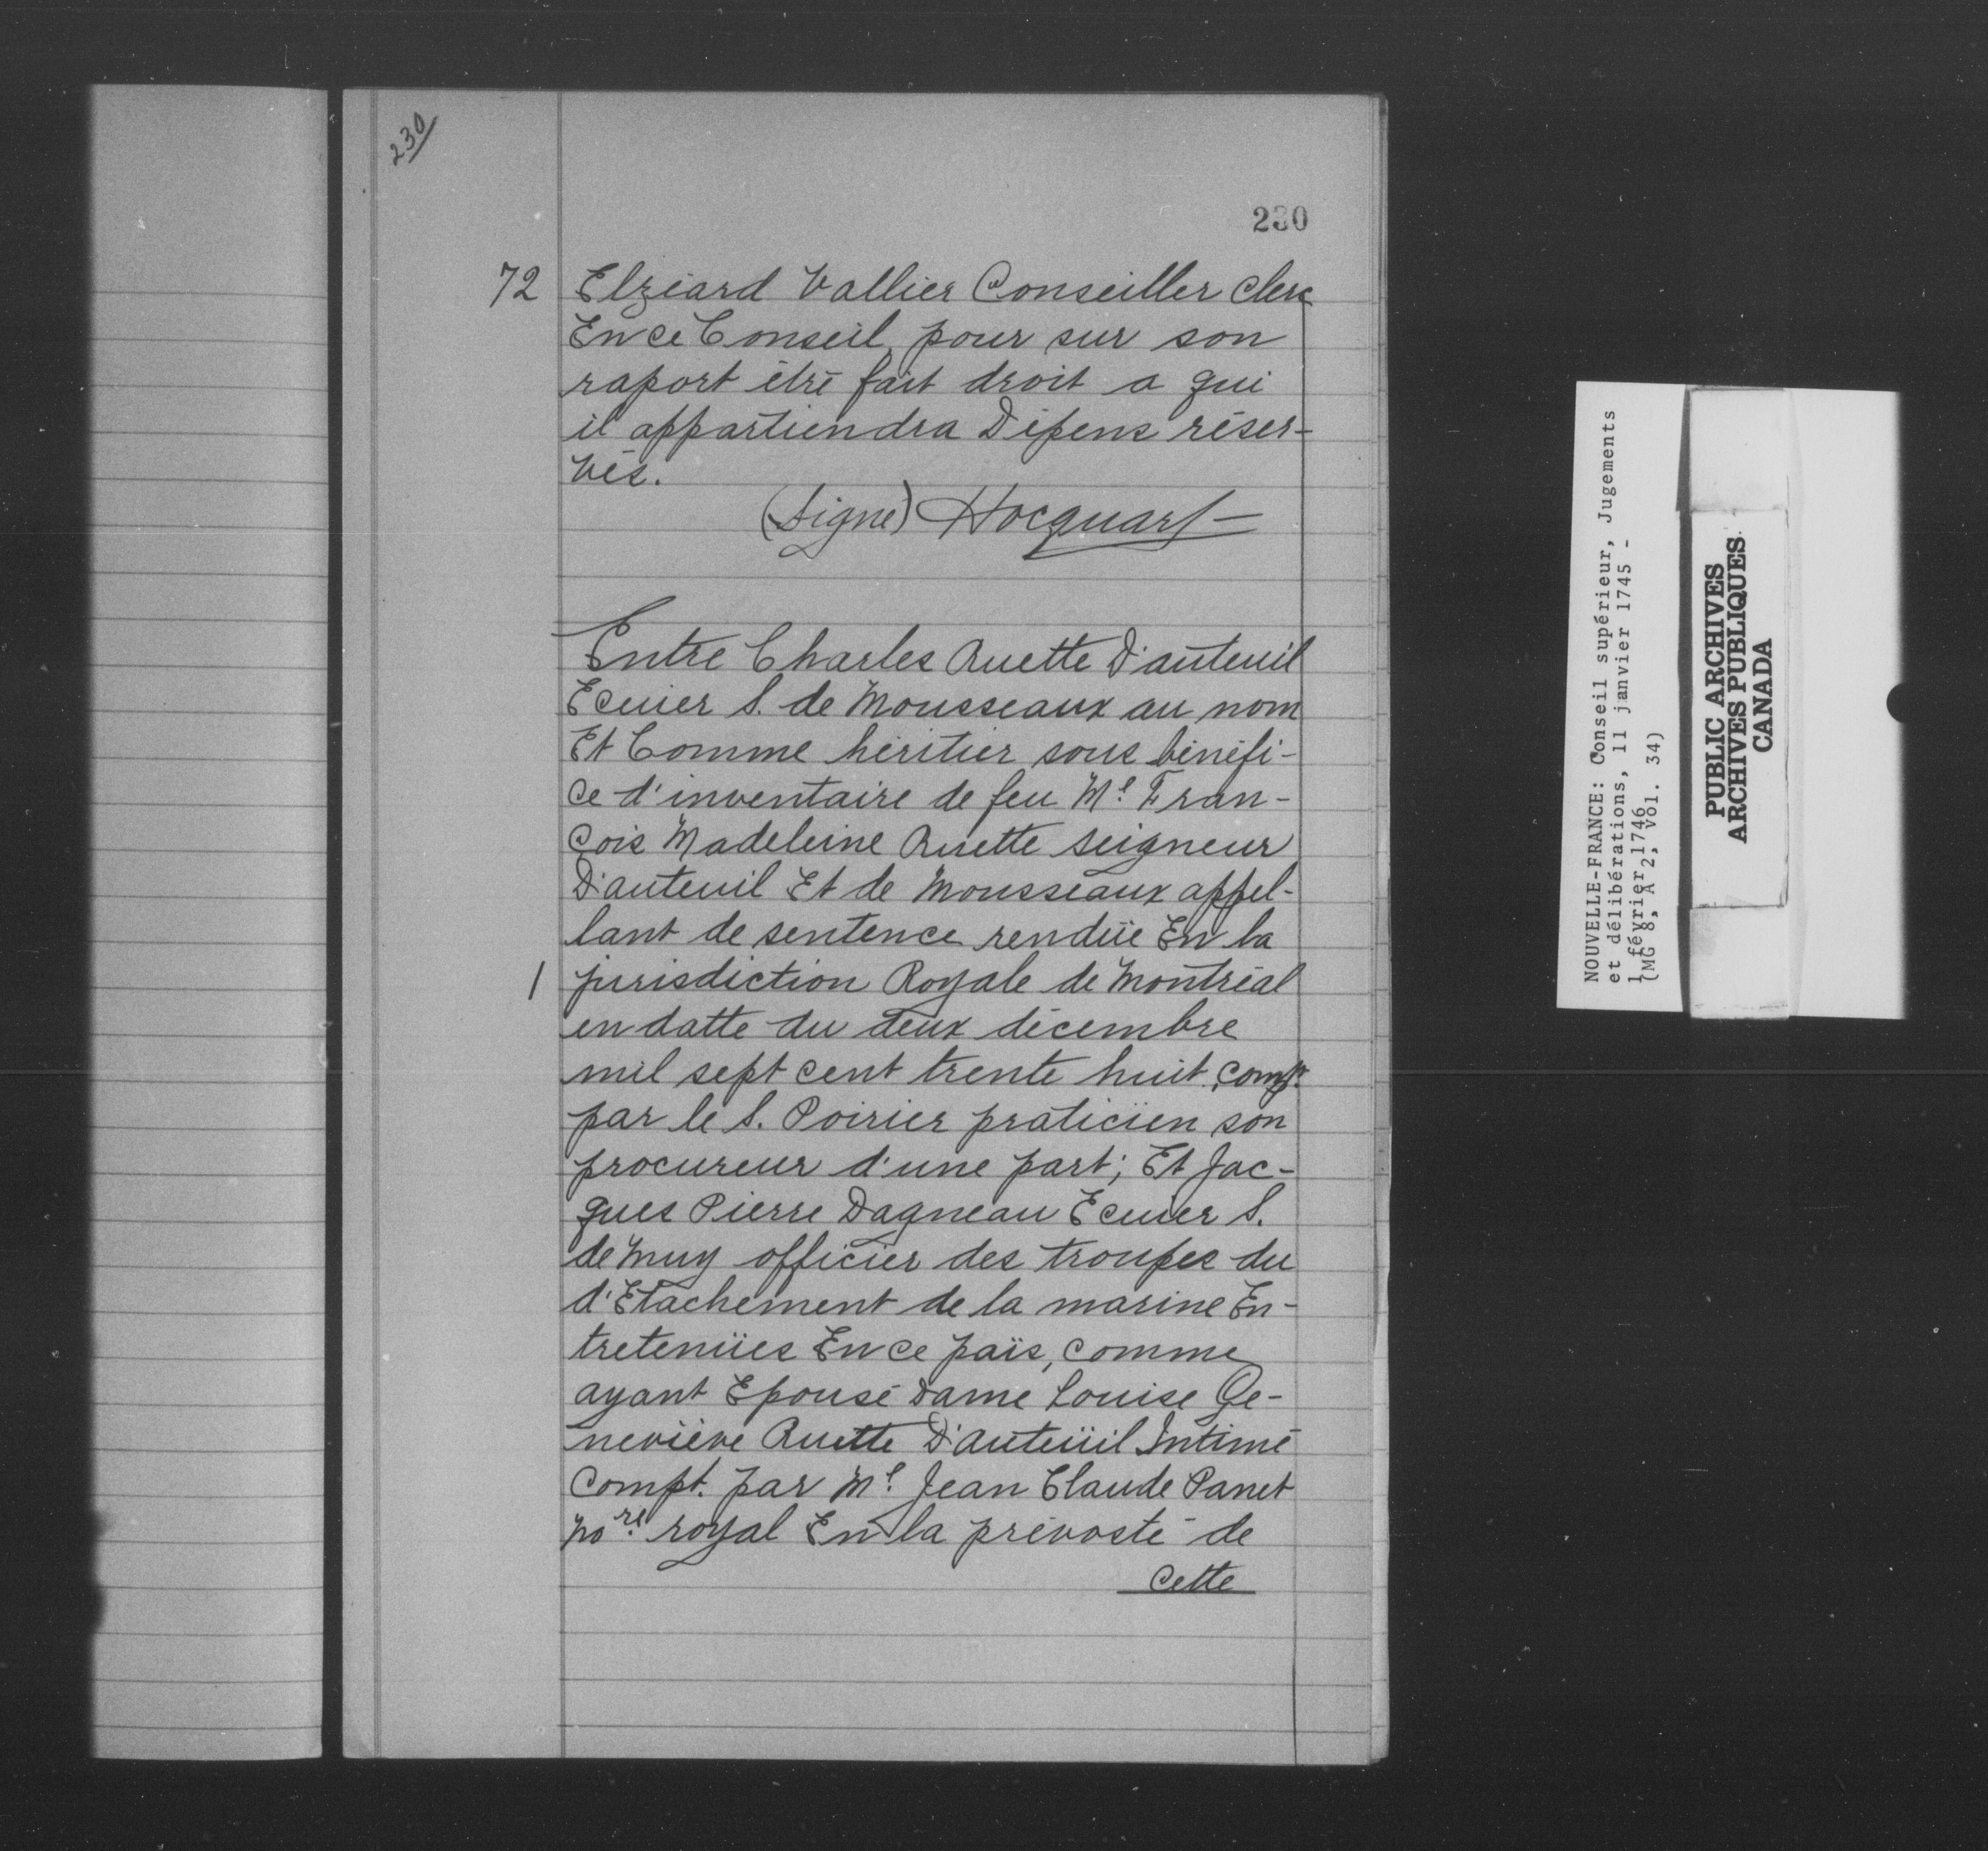 230
230
72 Elzéard Vallier Conseiller Clerc
En ce Conseil, pour sur son
raport étré fait droit a qui
il appartiendra Dépens réser-
vés.
(Signé) Hocquart
Entre Charles Ruette D'auteuil
Ecuier S. de Mousseaux au nom
Et Comme héritier sous bénéfi-
ce d'inventaire de feu Me. Fran-
cois Madeleine Ruette seigneur
D'auteuil Et de Mousseaux appel-
lant de sentence rendüe En la
/ jurisdiction Royale de Montréal
en datte du deux décembre
mil sept cent trente huit, compt.
par le S. Poirier praticïen son
procureur d'une part; Et Jac-
ques Pierre Dagneau Ecuier S.
de Muy officier des troupes du
d'Etachement de la marine En-
tretenües En ce païs, comme
ayant Epousé Dame Louise Ge-
neviève Ruette D'auteüil Intimé
Compt. par Me. Jean Claude Panet
no.re royal En la prévosté de
Cette
NOUVELLE-FRANCE: Conseil supérieur, Jugements
et délibérations, 11 janvier 1745 -
1 février 1746
(MG 8, A 2, vol. 34)
PUBLIC ARCHIVES
ARCHIVES PUBLIQUES
CANADA